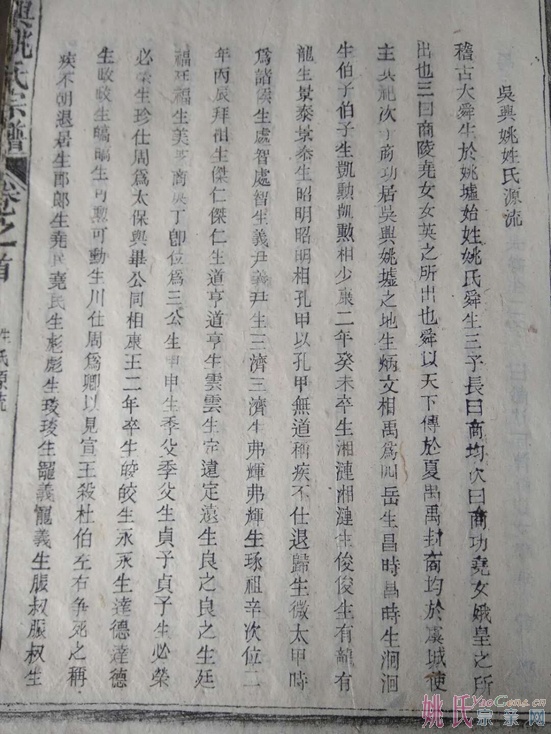 吳興姚姓氏源流
稽古大舜生於姚墟始姓姚氏舜生三子長曰商均次曰商功堯女娥皇之所
出也三曰商陵堯女女英之所出也舜以天下傳於夏禹禹封商均於虞城使
主其祀次子商功居吳興姚墟之地生炳文相禹為四岳生昌時昌時生泂泂
生伯子伯子生凱勲凱勲相少康二年癸未卒生湘漣湘漣生俊俊生有龍有
龍生景泰景泰生昭明昭明相孔甲以孔甲無道稱疾不仕退歸生微太甲時
為諸侯生處智處智生義尹義尹生三濟三濟生弗輝弗輝生琢祖辛次位二
年丙辰拜相生傑仁傑仁生道亨道亨生雲雲生定遠定遠生良之良之生廷
福廷福生美美商武丁卽位為三公生甲申生季父季父生貞子貞子生必榮
必榮生珍仕周為太保與畢公同相康王二年卒生皎皎生永永生達德達德
生畋畋生皜皜生可勲可動生川仕周為卿以見宣王殺杜伯左右爭死之稱
疾不朝退居生郎郎生堯民堯民生彪彪生琰琰生寵義寵義生版权版权生
興姚氏宗譜
卷之首
姓氏源流
姚氏宗亲网
YaoGens.cn